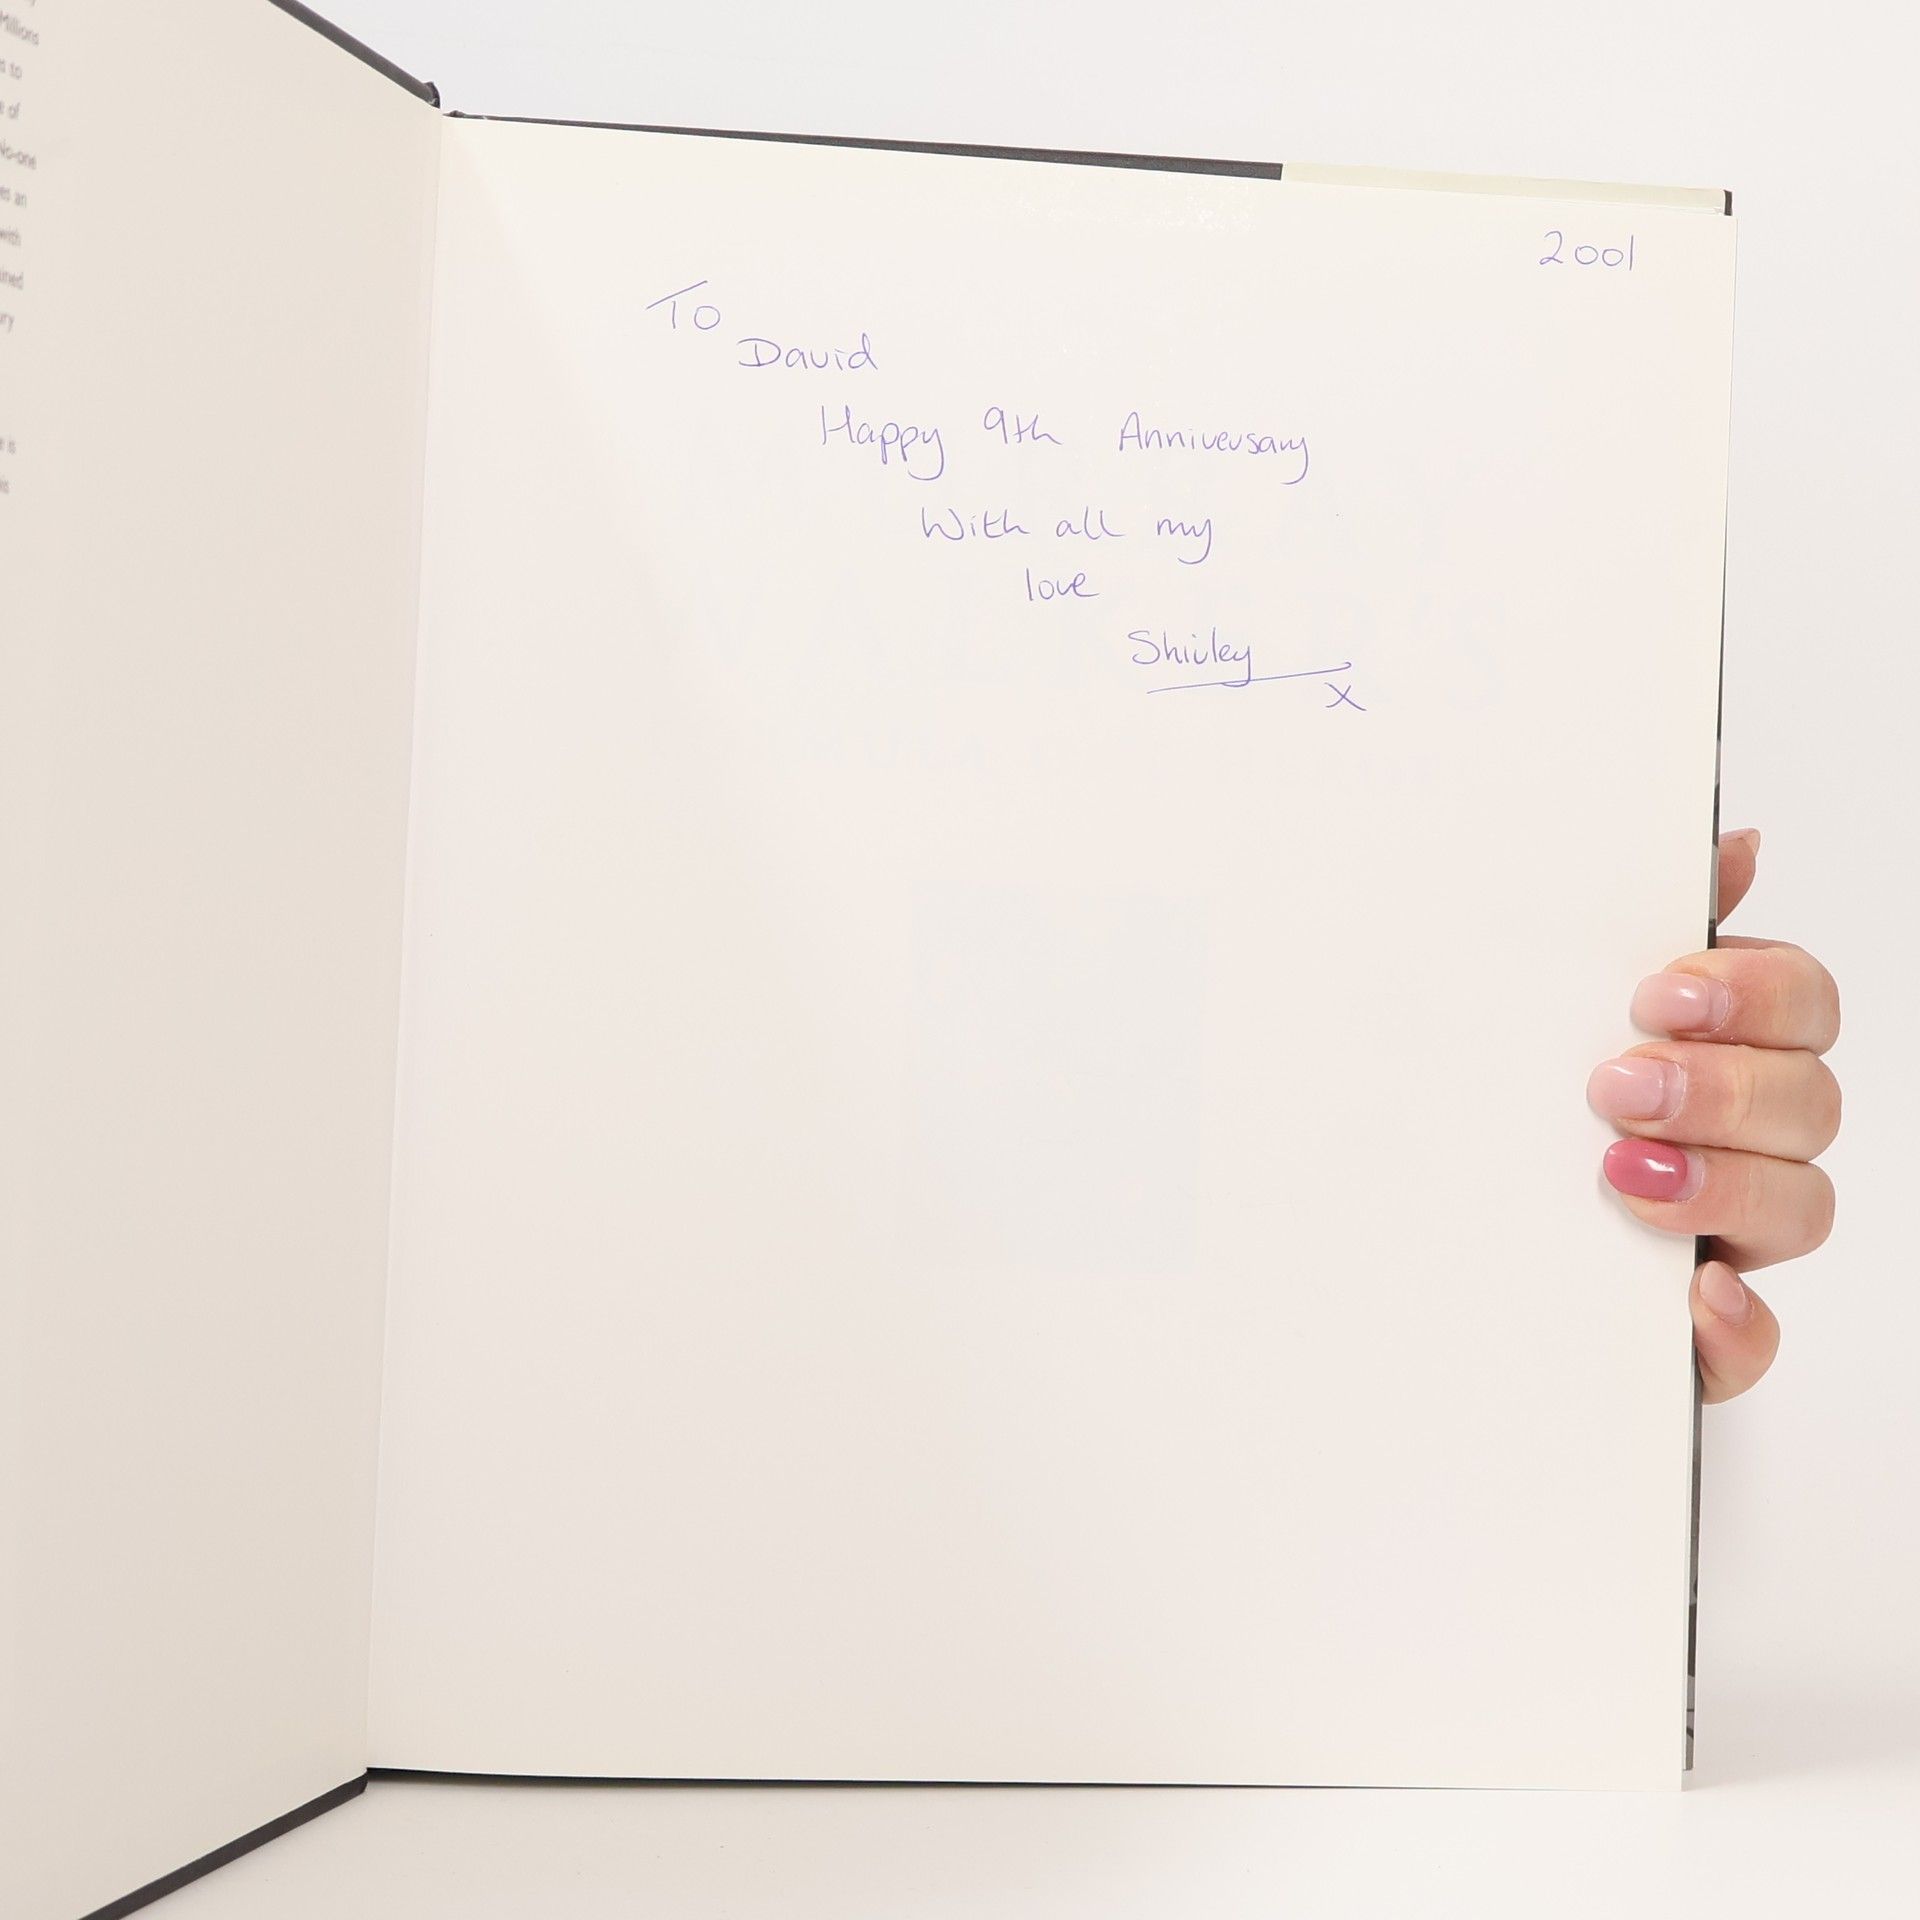 Millions
s to
e of
No-one
es an
with
ined
ury
e is
is
2001
To
David
Happy 9th Anniversary
With all my
love
Shirley
x